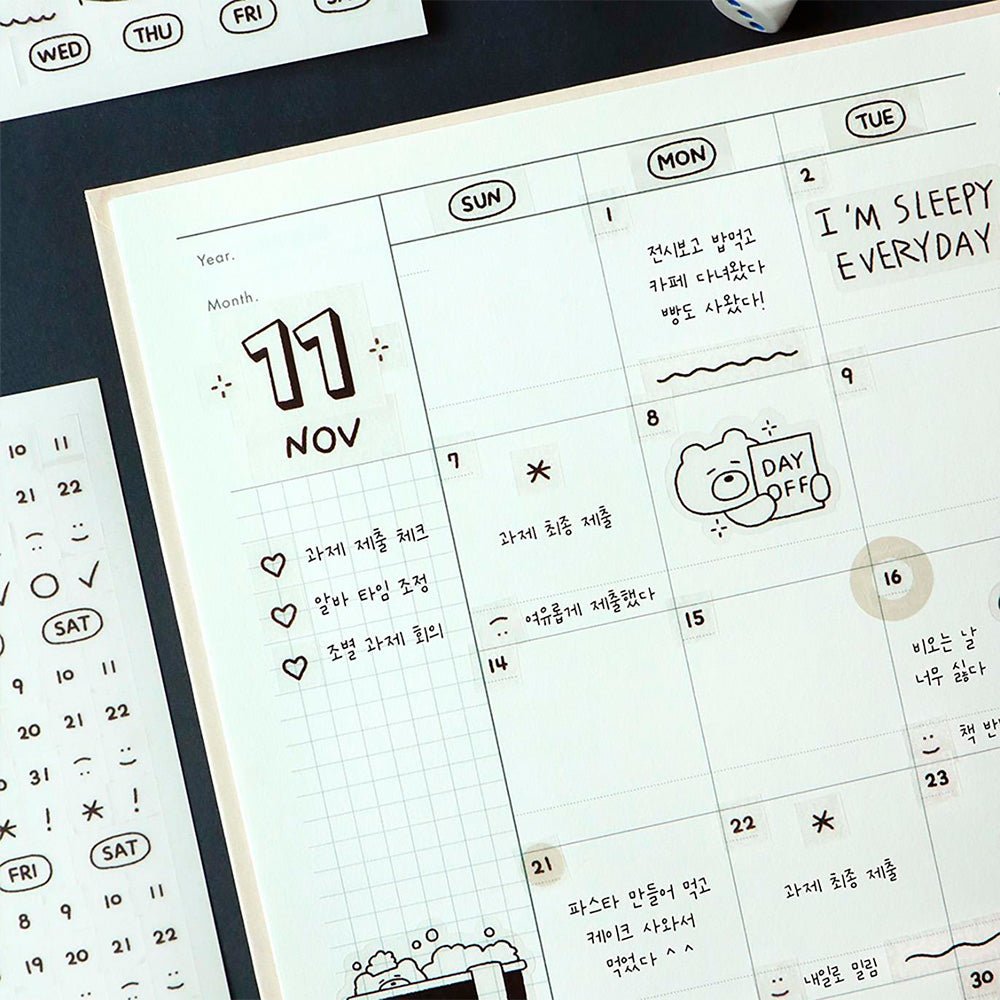 WED THU FRI
SUN MON TUE
Year.
Month.
11
NOV
과제 제출 체크
알바 타임 조정
조별 과제 회의
1
전시보고 밥먹고
카페 다녀왔다
빵도 사왔다!
2
I'M SLEEPY
EVERYDAY
7
과제 최종 제출
여유롭게 제출했다
8
DAY
OFF
9
14
15
16
비오는 날
너무 싫다
책
21
파스타 만들어 먹고
케이크 사와서
먹었다 ^ ^
22
과제 최종 제출
내일로 밀림
23
30
10 11
21 22
SAT
9 10 11
20 21 22
31
! * !
FRI SAT
8 9 10 11
19 20 21 22